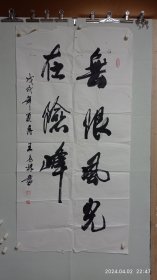 無限風光
在險峰
戊戌年夏月王
2024.04.02 22:47